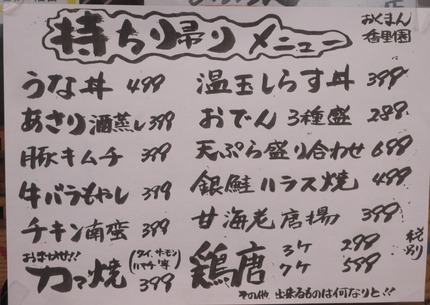 持ち帰り メニュー
おくまん
香里園
うな丼 499
あさり酒蒸し 399
豚キムチ 399
牛バラもやし 399
チキン南蛮 399
おまかせ!!
カマ焼 (タイ、サーモン ハマチ等) 399
温玉しらす丼 399
おでん 3種盛 288
天ぷら盛り合わせ 699
銀鮭ハラス焼 499
甘海老唐揚 399
鶏唐 3ケ 299
7ケ 599
税別
その他 出来るものは何なりと!!